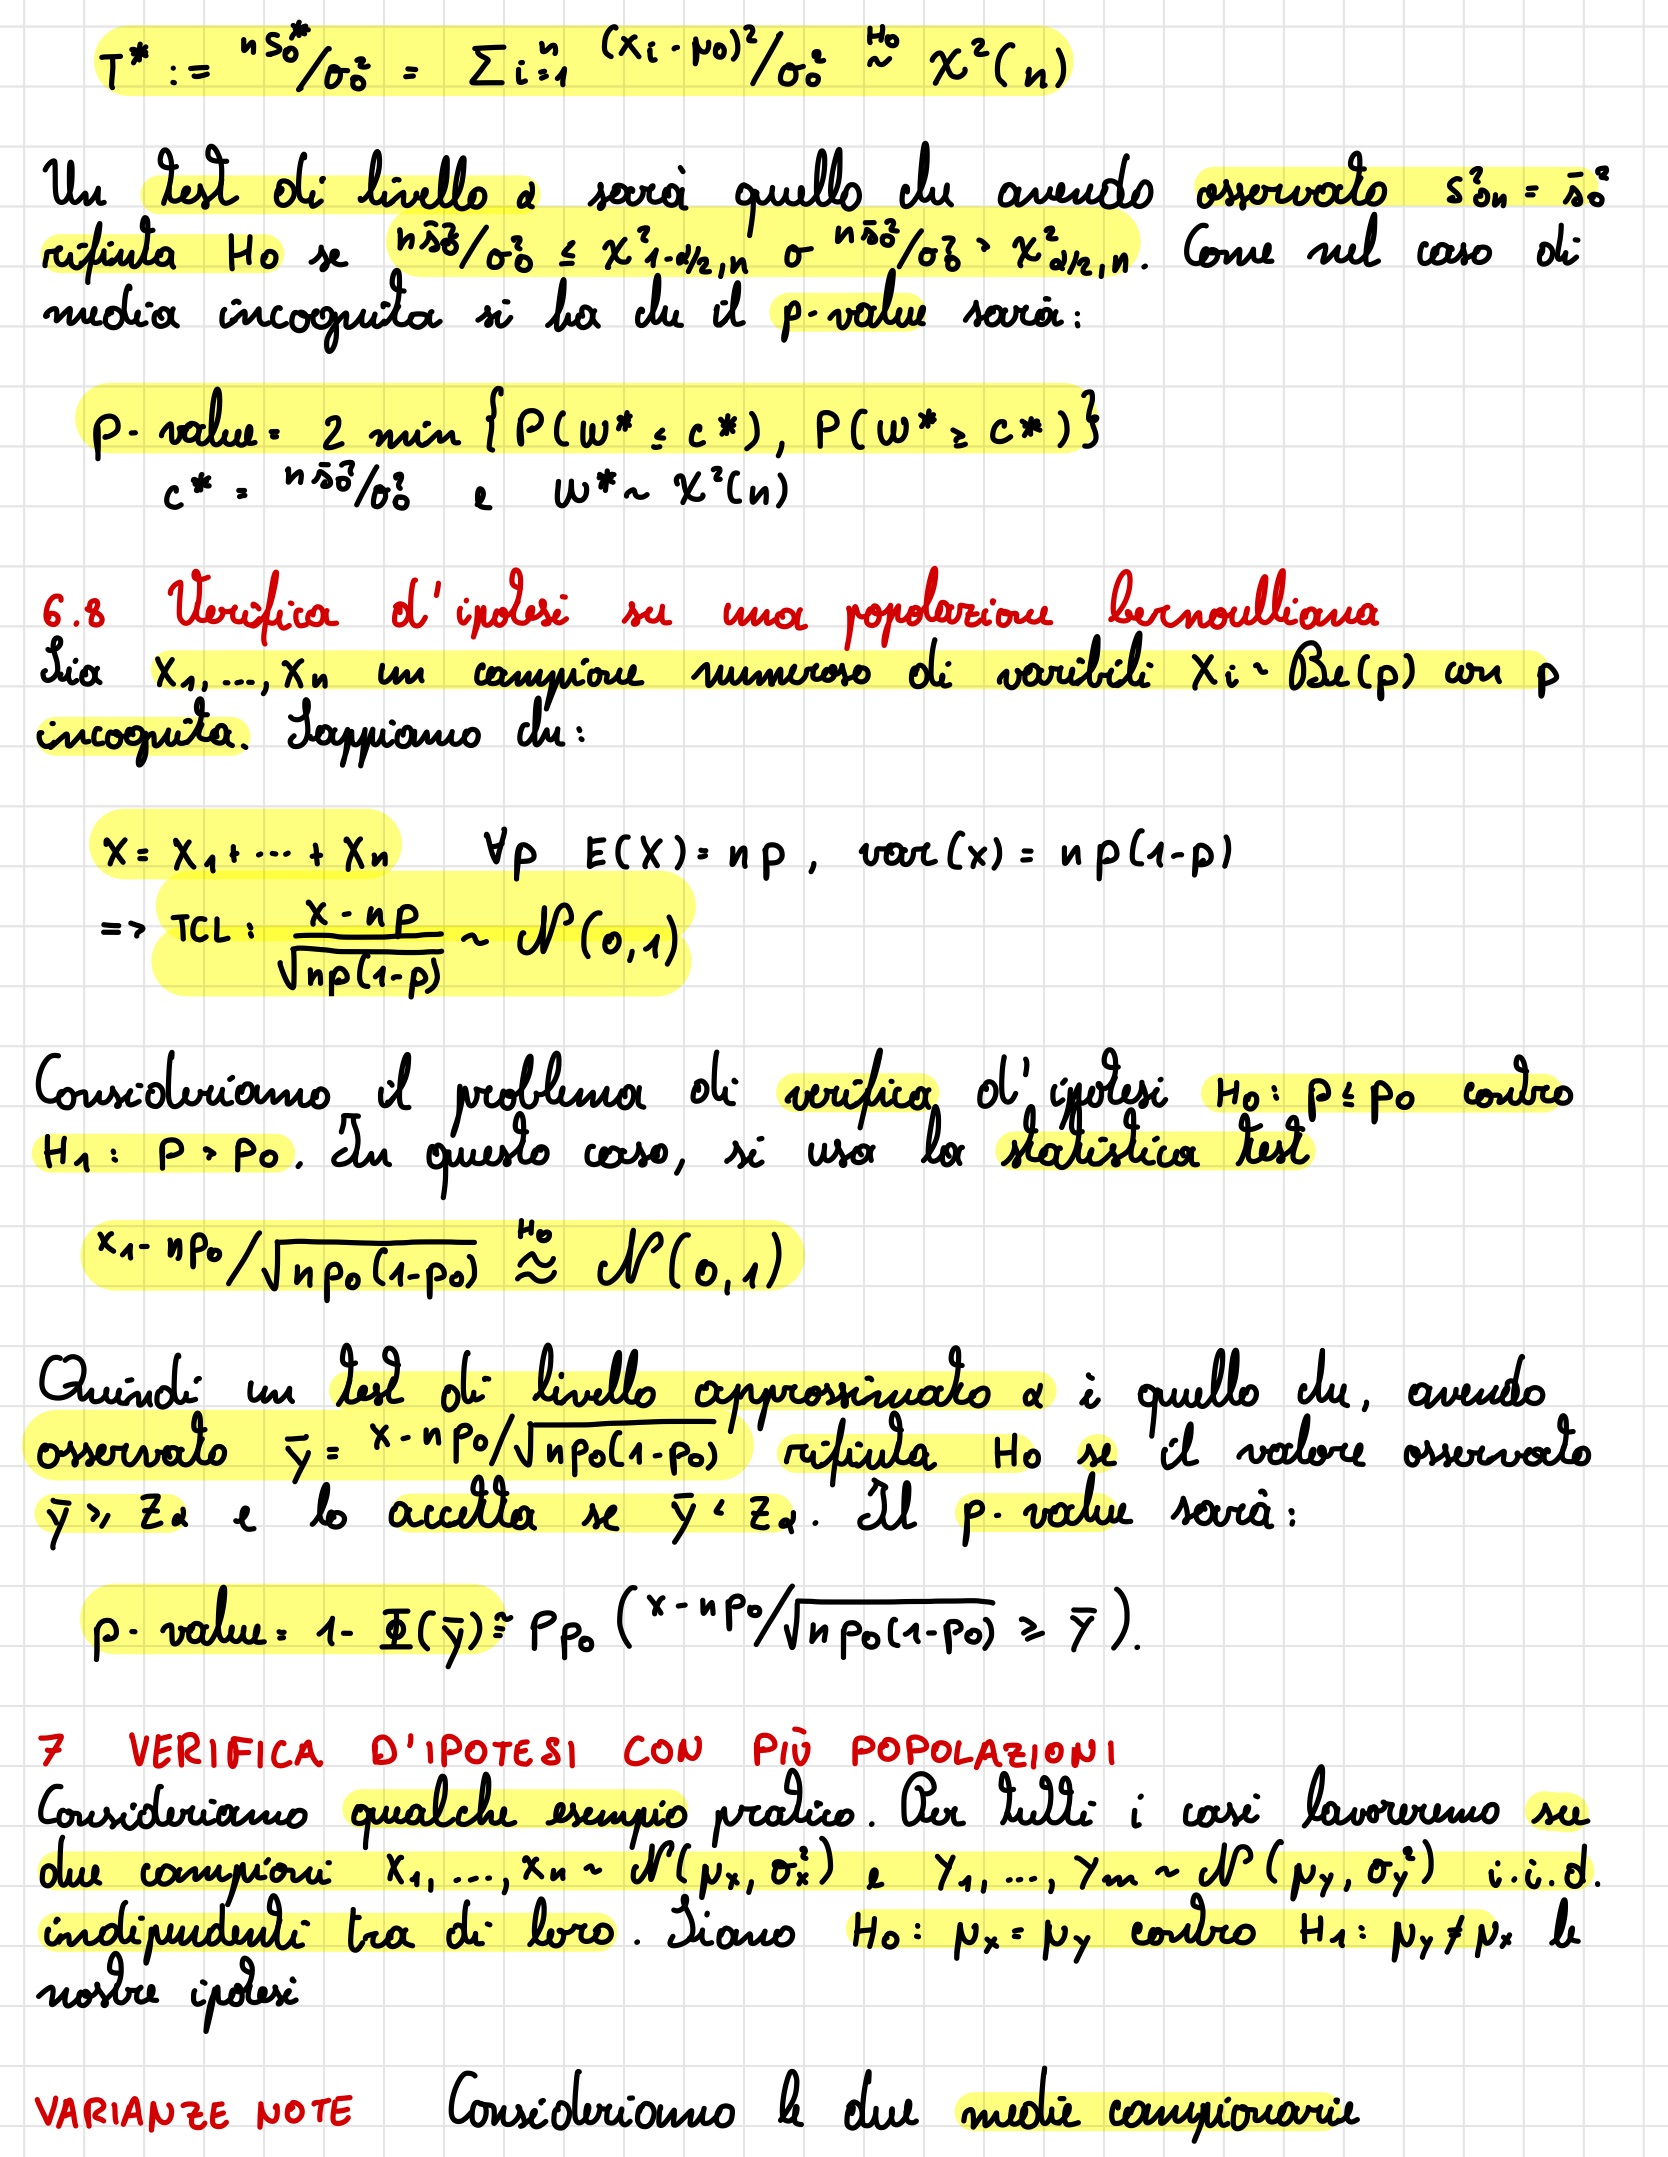 T* := nS₀*/σ₀² = Σ i=1 n (Xi - μ0)²/σ₀² ~ᴴ⁰ χ²(n)
Un test di livello α sarà quello che avendo osservato S²0n = s̄0²
rifiuta H0 se ns̄0²/σ0² ≤ χ²1-α/2,n o ns̄0²/σ0² > χ²α/2,n. Come nel caso di
media incognita si ha che il p-value sarà:
p-value = 2 min {P(W* ≤ c*), P(W* ≥ c*)}
c* = ns̄0²/σ0² e W* ~ χ²(n)
6.8 Verifica d'ipotesi su una popolazione bernoulliana
Sia X1, ..., Xn un campione numeroso di varibili Xi ~ Be(p) con p
incognita. Sappiamo che:
X = X1 + ... + Xn ∀p E(X) = np, var(x) = np(1-p)
=> TCL: (X - np)/√(np(1-p)) ~ N(0,1)
Consideriamo il problema di verifica d'ipotesi H0: p ≤ p0 contro
H1: p > p0. In questo caso, si usa la statistica test
X1 - np0/√(np0(1-p0)) ≈ᴴ⁰ N(0,1)
Quindi un test di livello approssimato α è quello che, avendo
osservato ȳ = x - np0/√(np0(1-p0)) rifiuta H0 se il valore osservato
ȳ ≥ Zα e lo accetta se ȳ < Zα. Il p-value sarà:
p-value = 1 - Φ(ȳ) ≅ Pp0 (x - np0/√(np0(1-p0)) ≥ ȳ).
7 VERIFICA D'IPOTESI CON PIÙ POPOLAZIONI
Consideriamo qualche esempio pratico. Per tutti i casi lavoreremo su
due campioni X1, ..., Xn ~ N(μx, σx²) e Y1, ..., Ym ~ N(μy, σy²) i.i.d.
indipendenti tra di loro. Siano H0: μx = μy contro H1: μy ≠ μx le
nostre ipotesi
VARIANZE NOTE Consideriamo le due medie campionarie